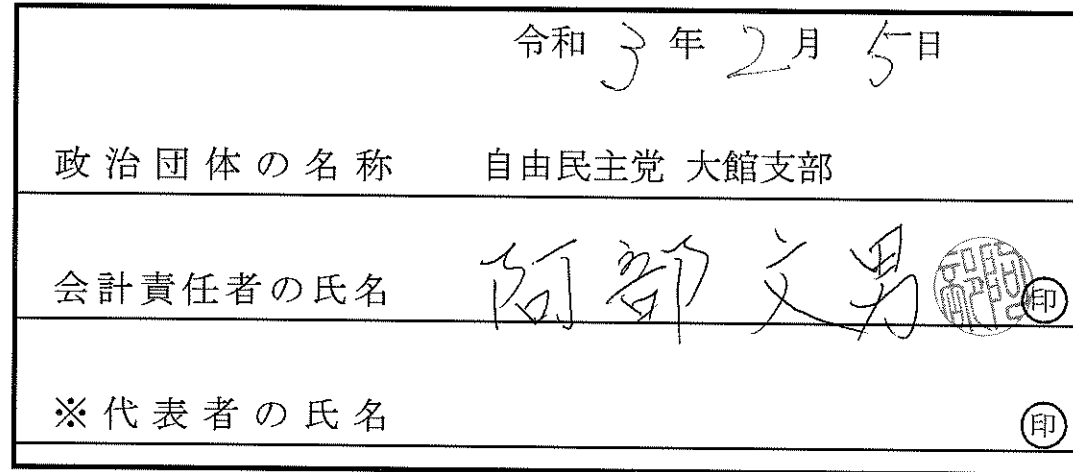 令和 3 年 2 月 5 日
政治団体の名称 自由民主党 大館支部
会計責任者の氏名 阿部文男 ㊞
※代表者の氏名 ㊞